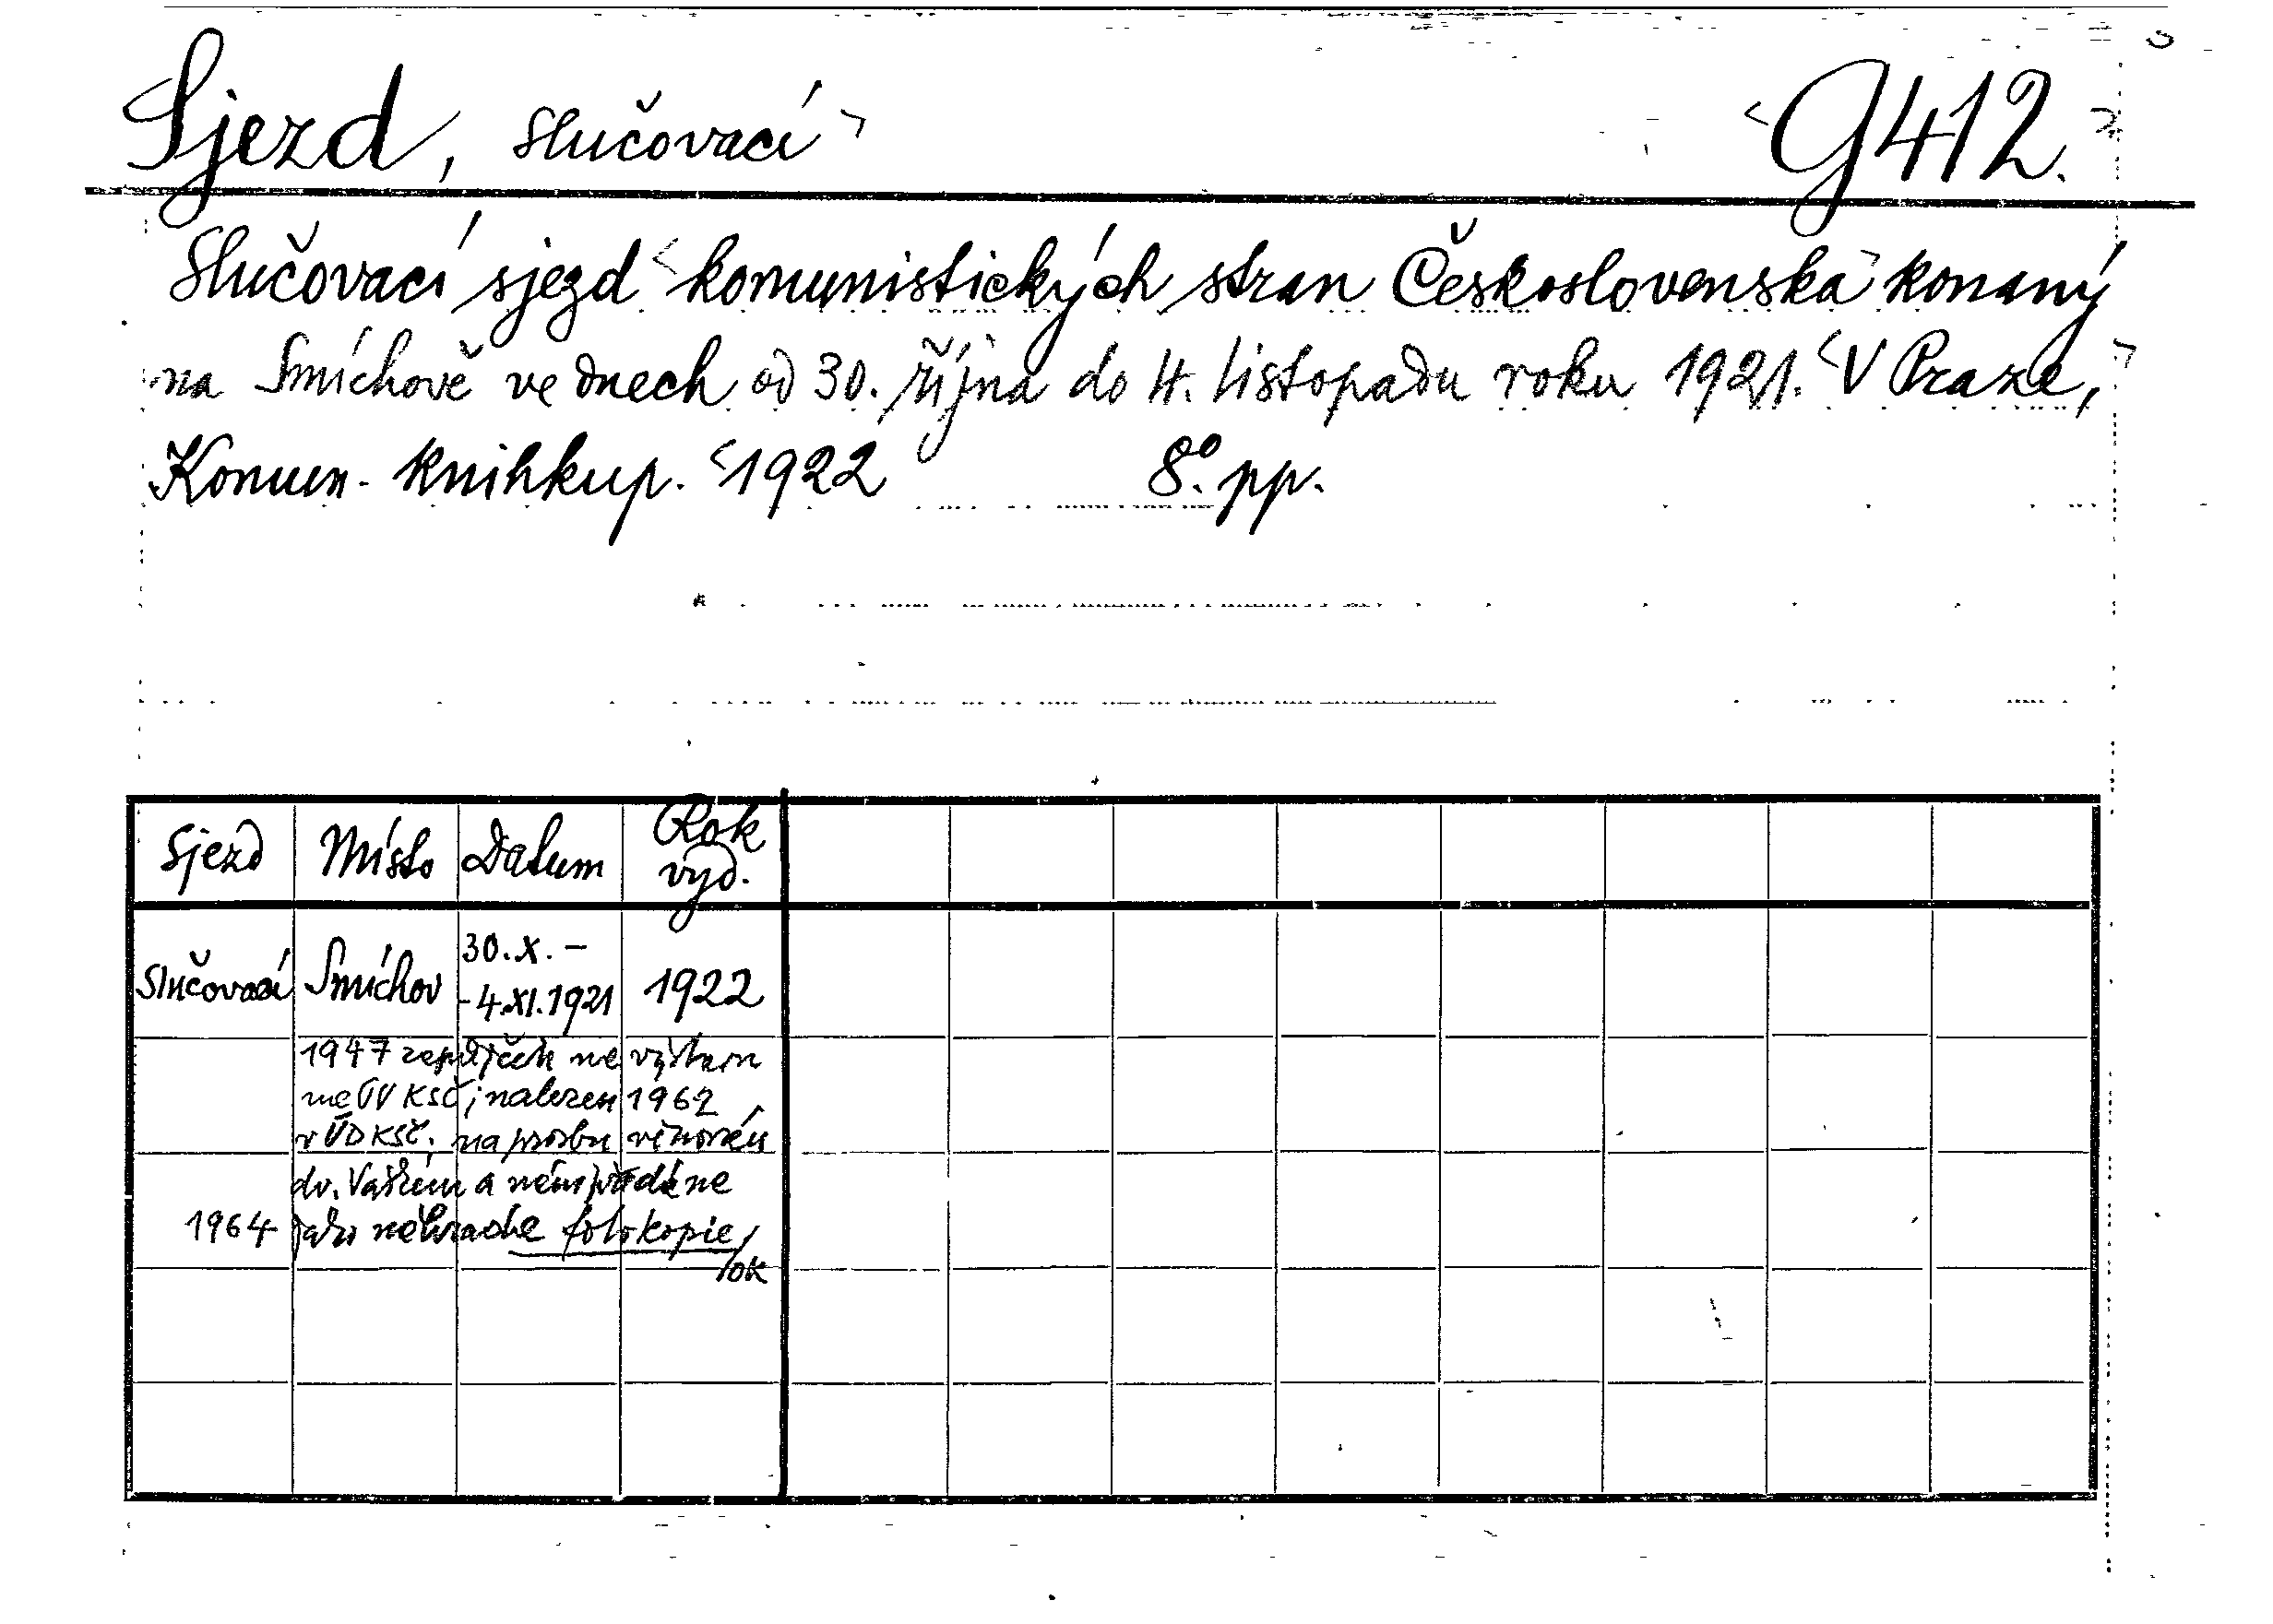 Sjezd, slučovací G412.
Slučovací sjezd komunistických stran Československa konaný
na Smíchově ve dnech od 30. října do 4. listopadu roku 1921. V Praze,
Komun. knihkup. 1922 8º. pp.
Sjezd Místo Datum Rok vyd.
Slučovací Smíchov 30.X. – - 4.XI.1921 1922
1947 zapůjčen na výstavu
na ÚV KSČ; nalezen 1962
v ÚD KSČ, na prosbu věnován
a nám předána
1964 jako náhrada fotokopie
/OK